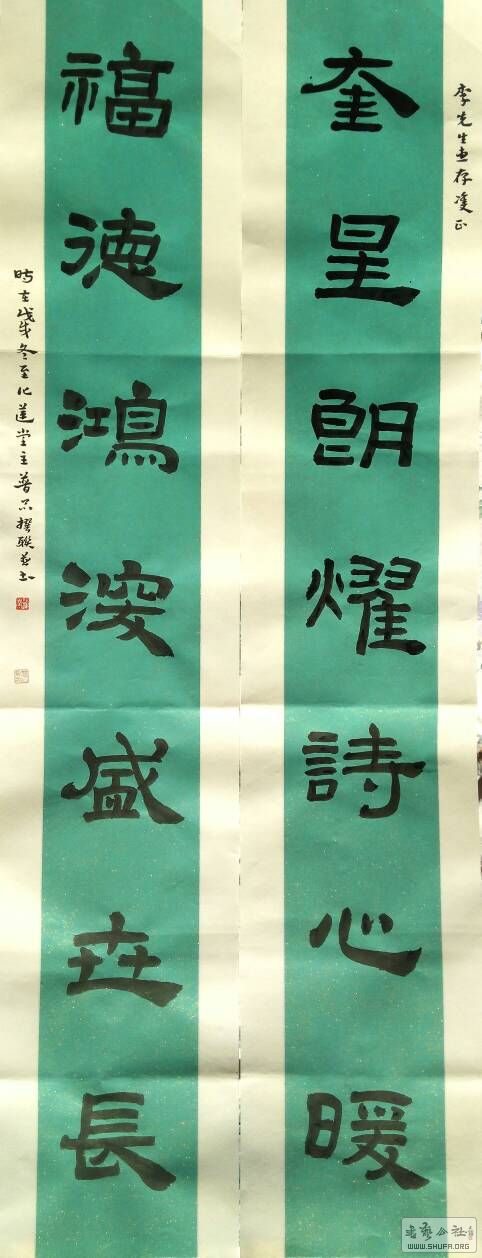 李先生惠存正
奎星朗耀詩心暖
福德鴻深盛世長
時在戊戌冬至化蓮堂主普撰聯并書
书艺公社
WWW.SHUFA.ORG